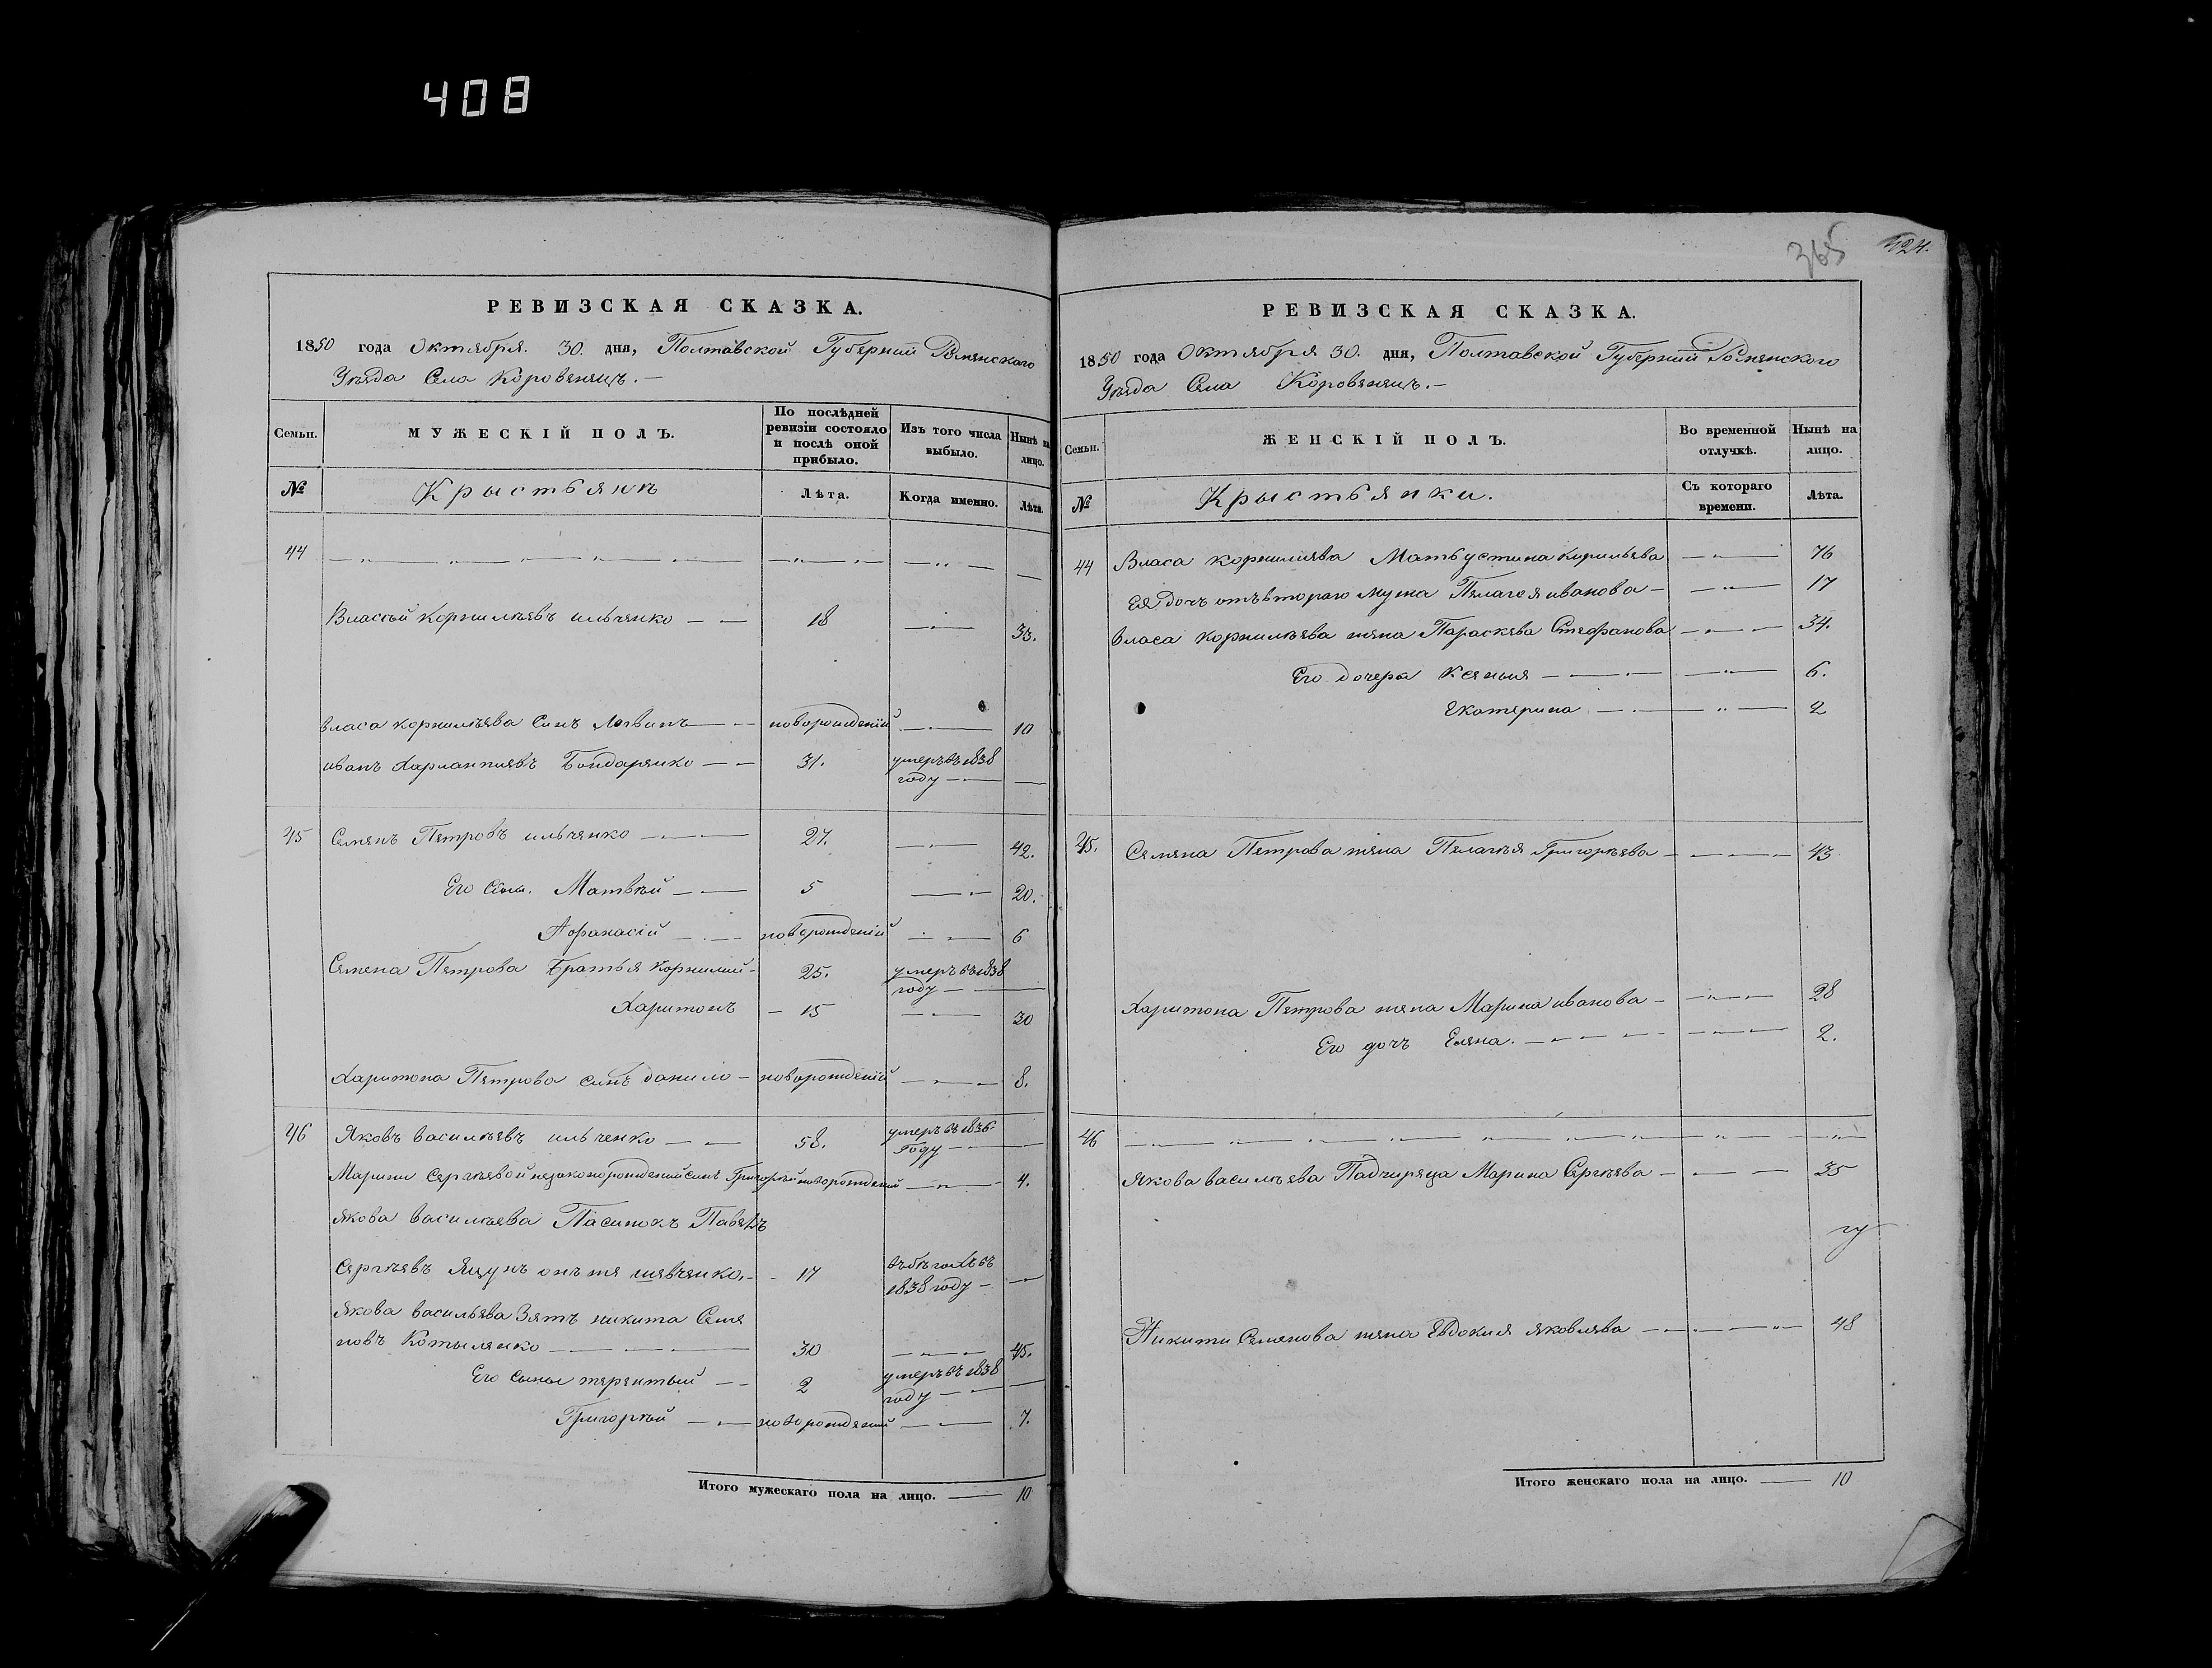 408
РЕВИЗСКАЯ СКАЗКА.
1850 года Октября. 30. дня, Полтавской Губернии Роменского
Уезда Села Коровенецъ.
Семьи. МУЖЕСКІЙ ПОЛЪ. По послѣдней ревизіи состояло и послѣ оной прибыло. Изъ того числа выбыло. Нынѣ на лицо.
№ Крыстьянѣ Лѣта. Когда именно. Лѣта.
44
Власъй Корнилѣевъ ильченко 18 33.
власа корнилѣева Синъ Логвинъ новорожденій 10
иванъ Харлампиевъ Бондаренко 31. умеръ въ 1838
году
45 Семенъ Петровъ ильченко 27. 42.
Его Сыны. Матвѣй 5 20.
Афанасій новорожденій 6
Семена Петрова Братья Корнилий 25. умеръ въ 1838
году
Харитонъ 15 30
Харитона Петрова синъ данило новорожденій 8.
46 Яковъ васильевъ ильченко 58. умеръ въ 1836
Году
Марини Сергѣевой незаконорожденій синъ Григорѣй новорожденій 4.
Якова васильева Пасинокъ Павелъ
Сергѣевъ онъ же шевченко 17
1838 году
Якова васильева Зять никита Семе
новъ Котыленко 30 45.
Его Сыны терентый 2 умеръ въ 1838
году
Григорѣй новорожденій 7.
Итого мужескаго пола на лицо. 10
365 424.
РЕВИЗСКАЯ СКАЗКА.
1850 года Октября 30. дня, Полтавской Губернии Роменского
Уезда Села Коровенецъ.
Семьи. ЖЕНСКІЙ ПОЛЪ. Во временной отлучкѣ. Нынѣ на лицо.
№ Крыстьянки. Съ котораго времени. Лѣта.
44 Власа корнилиева Мать устина кирильева 76
Ея дочъ отъ втораго мужа Пелагея иванова 17
власа корнилѣева жена Параскева Стефанова 34.
Его дочера Ксенья 6.
Екатерина 2
45. Семена Петрова жена Пелагѣя Григорѣева 43
Харитона Петрова жена Марина иванова 28
Его дочъ Елена. 2.
46
Якова васильева Падчирица Марина Сергѣева 35
Никити Семенова жена Евдокия яковлева 48
Итого женскаго пола на лицо. 10